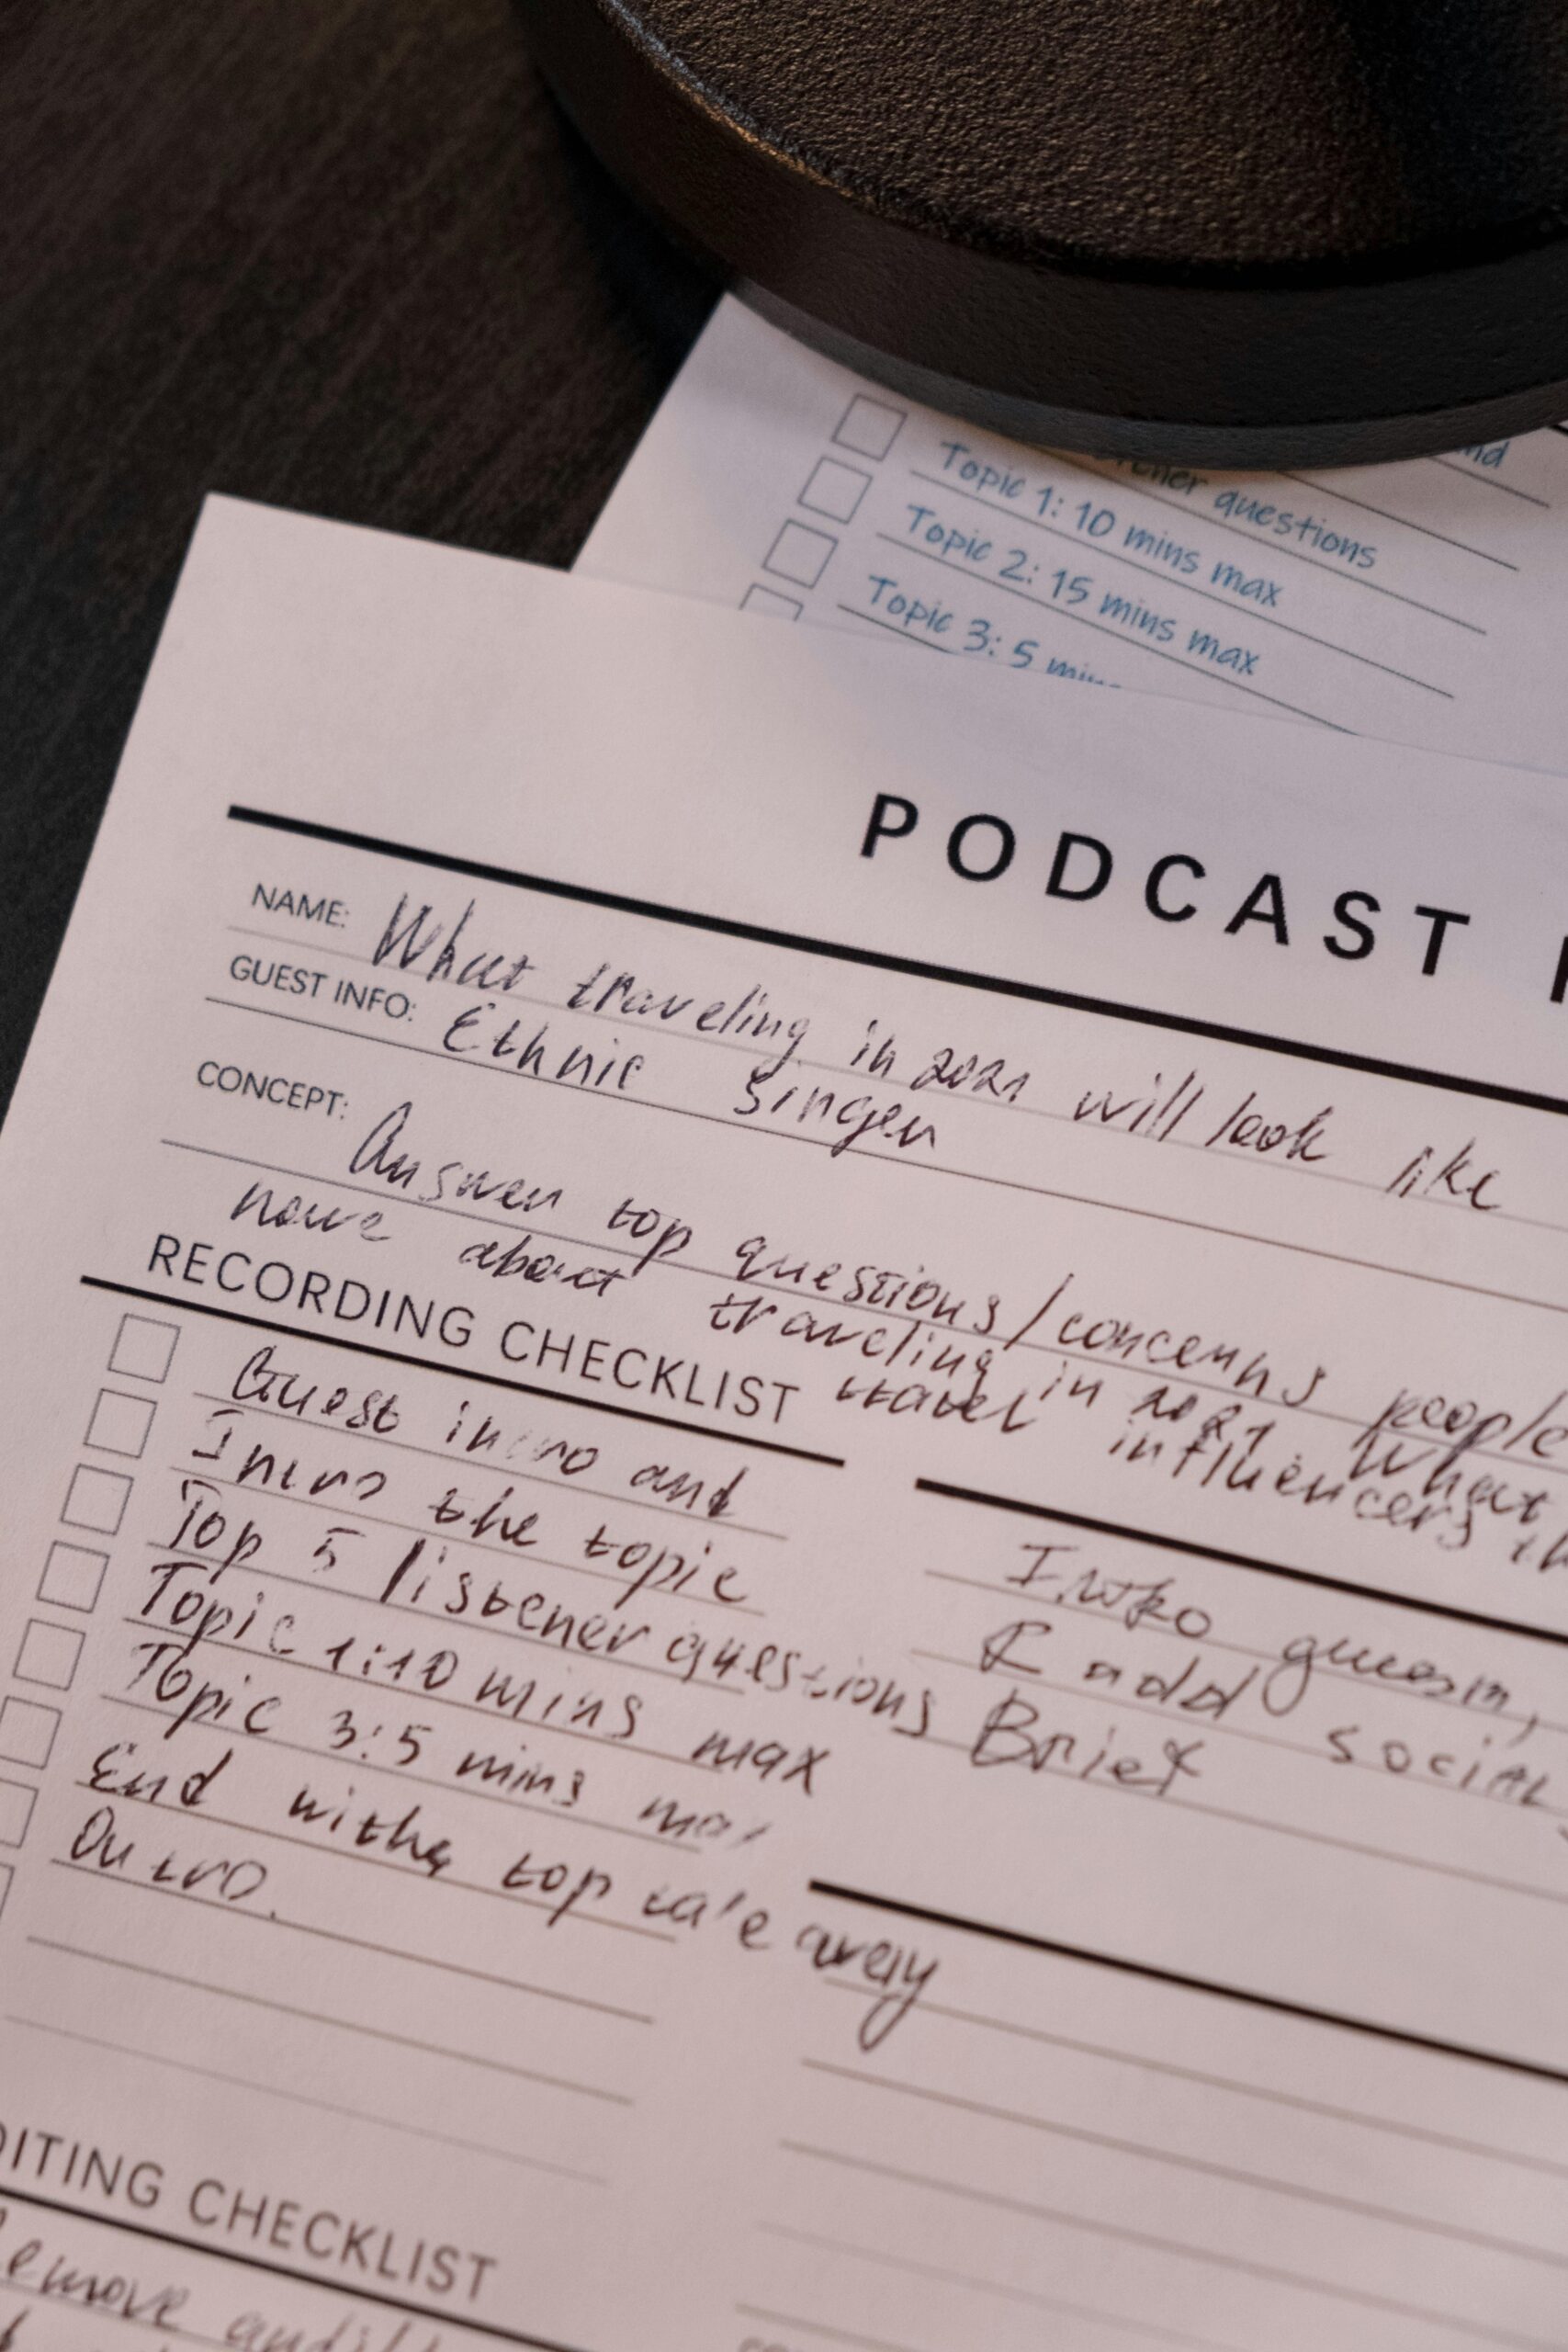 questions
Topic 1: 10 mins max
Topic 2: 15 mins max
Topic 3: 5
PODCAST
NAME: What traveling in 2021 will look like
GUEST INFO: Ethnic Singer
CONCEPT: Answer top questions/concerns people
about traveling in 2021 What
travel influencers
RECORDING CHECKLIST
Guest intro and
Intro the topic
Top 5 listener questions
Topic 1:10 mins max
Topic 3:5 mins
End with a top away
Outro.
I add social
Brief
CHECKLIST